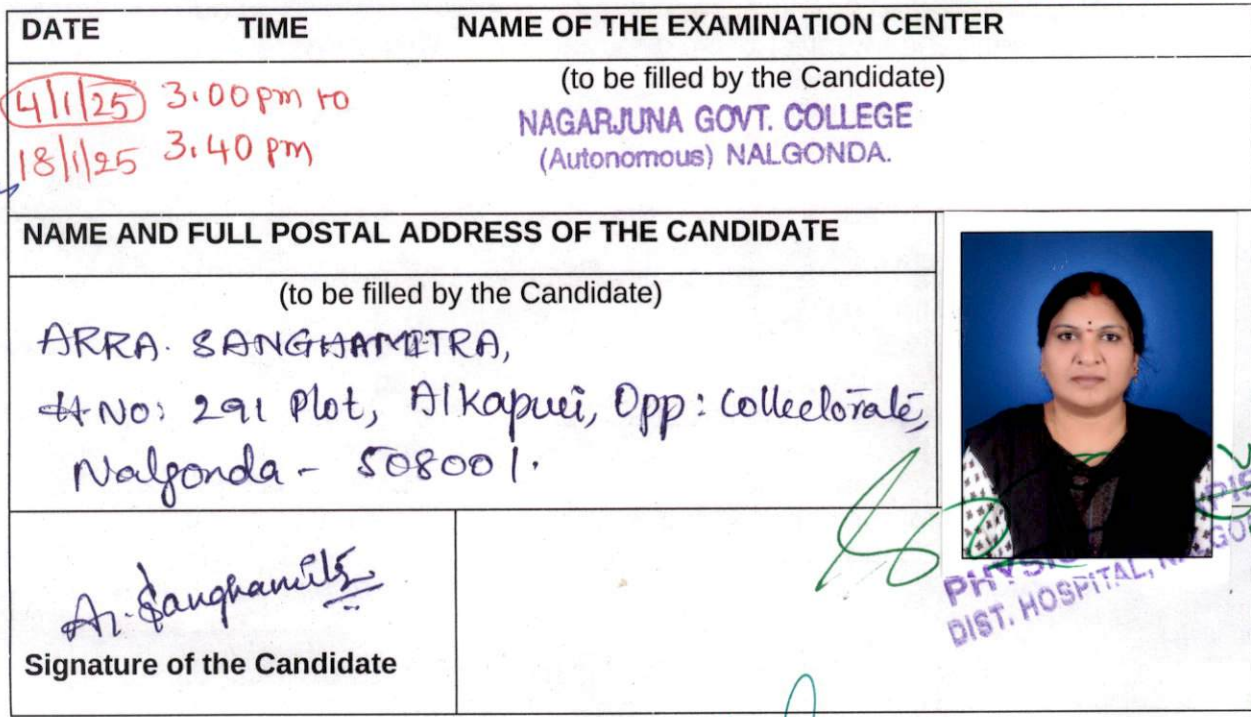 DATE TIME NAME OF THE EXAMINATION CENTER
(to be filled by the Candidate)
4/1/25 3.00pm to
18/1/25 3.40 pm
NAGARJUNA GOVT. COLLEGE
(Autonomous) NALGONDA.
NAME AND FULL POSTAL ADDRESS OF THE CANDIDATE
(to be filled by the Candidate)
ARRA. SANGHAMITRA,
H No: 291 Plot, Alkapuri, Opp: Collectorate,
Nalgonda - 508001.
A. Sanghamitra
Signature of the Candidate
DIST. HOSPITAL,